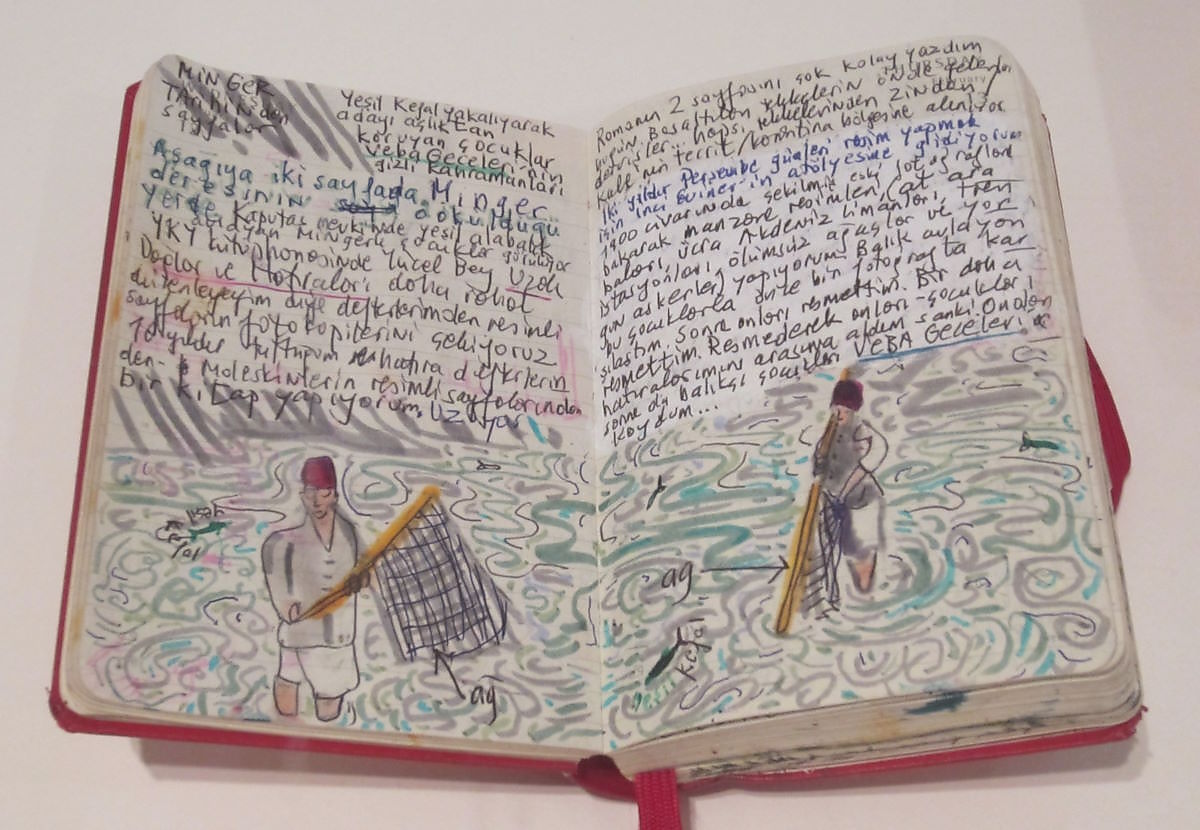 MİNGER
TARİHİNden
sayfalar
Yeşil Kefal yakalıyarak
adayı açlıktan
koruyan çocuklar
Veba Geceleri'nin
gizli kahramanları
Aşağıya iki sayfada Minger
deresinin döküldüğü
yerde Kaputaş mevkiinde yeşil alabalık
avlayan Mingerli çocuklar görülüyor
YKY kütüphanesinde Yücel Bey Uzak
Dağlar ve Hatıralar'ı daha rahat
düzenleyeyim diye defterlerimden resimli
sayfaların fotokopilerini çekiyoruz
10 yıldır tuttuğum hatıra defterlerin
den- Moleskinlerin resimli sayfalarından
bir kitap yapıyorum, Uzak
yeşil
Kefal
ağ
Romanın 2 sayfasını çok kolay yazdım
bugün. Boşaltılan tekkelerin önde gelenleri
dervişler.. hapis, tekkelerinden Zindan/
Kale'nin tecrit/karantina bölgesine alınıyor
İki yıldır Perşembe günleri resim yapmak
için İnci Eviner'in atölyesine gidiyorum
1900 civarında çekilmiş eski fotoğraflara
bakarak manzara resimleri, (at ara
baları, ücra Akdeniz limanları, tren
istasyonları, ölümsüz ağaçlar ve yor
gun askerler) yapıyorum. Balık avlayan
bu çocuklarla önce bir fotoğrafta kar
şılaştım. Sonra onları resmettim. Bir daha
resmettim. Resmederek onları -çocukları
hatıralarımın arasına aldım sanki. Ondan
sonra da balıkçı çocukları VEBA GECELERİ'ne
koydum...
ağ
Kefal